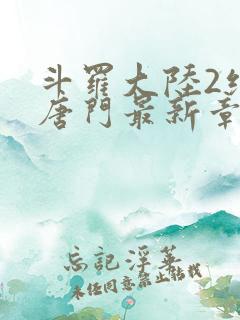 斗羅大陸2絕
唐門最新章
忘記浮華
未任同意禁止轉載